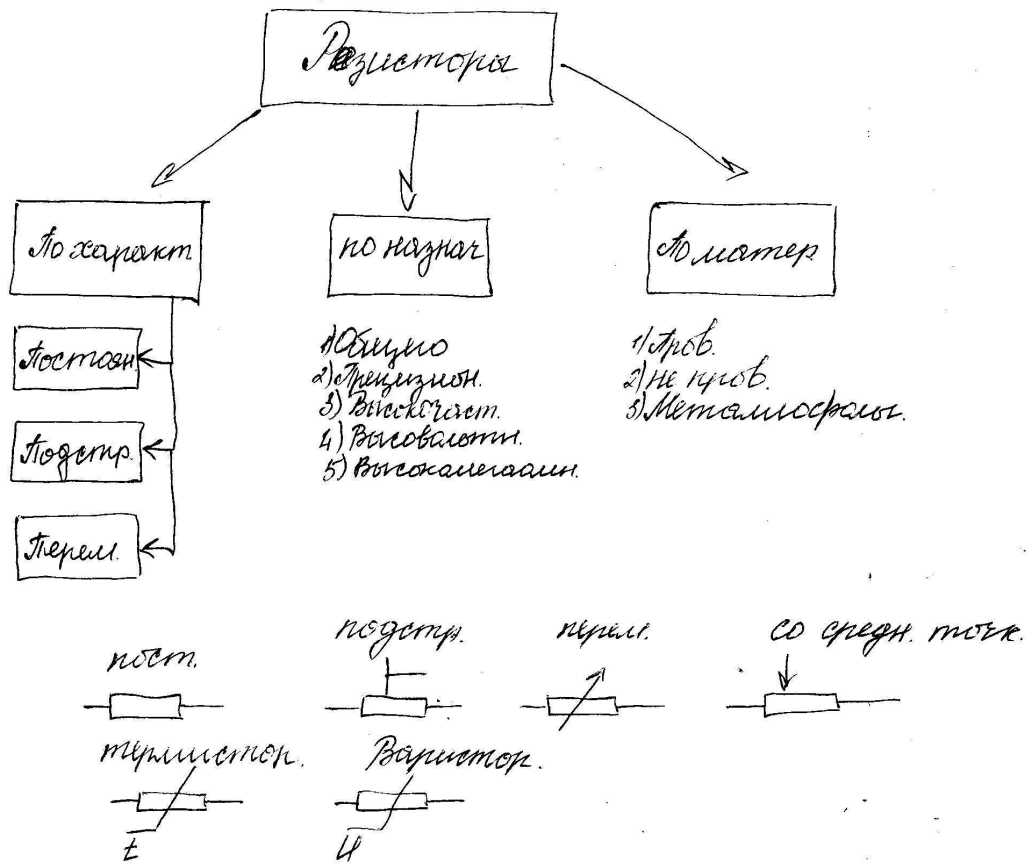 Резисторы
По характ.
по назнач
По матер.
Постоян
Подстр.
Перем.
1) Общего
2) Прецизион.
3) Высокочаст.
4) Высовольтн.
5) Высокомегаомн.
1) Пров.
2) Не пров.
3) Металлофольг.
пост.
подстр.
перем.
со средн. точк.
термистор.
Варистор.
t
U